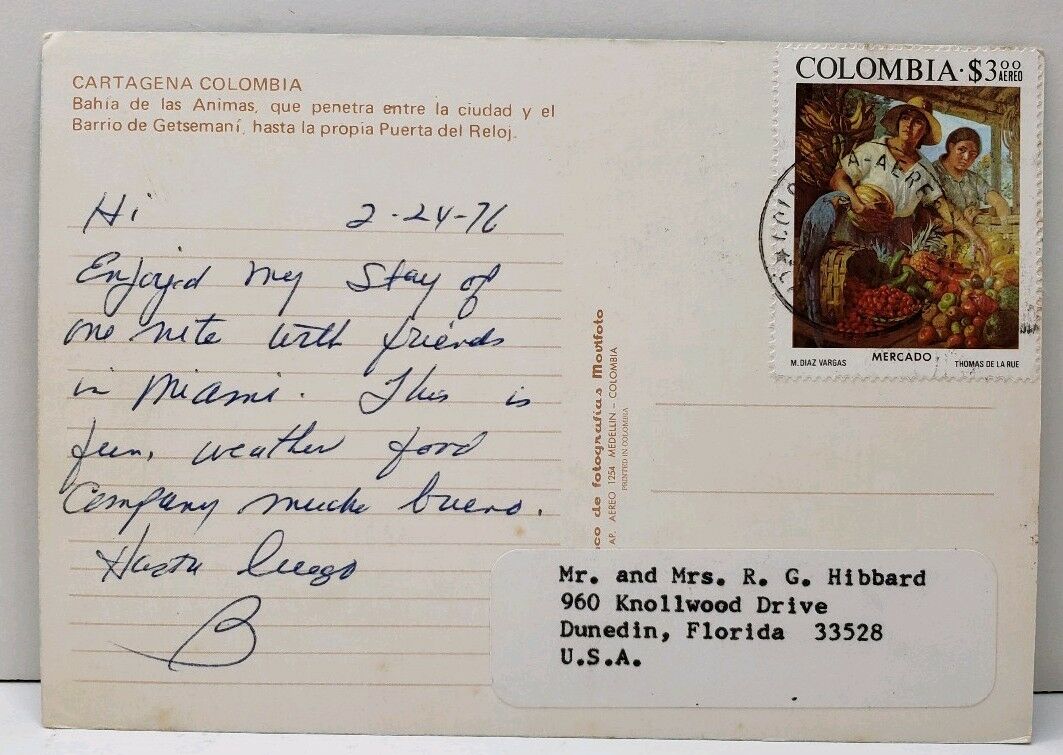 CARTAGENA COLOMBIA
Bahía de las Animas, que penetra entre la ciudad y el
Barrio de Getsemaní, hasta la propia Puerta del Reloj.
Hi 2-24-76
Enjoyed my Stay of
one nite with friends
in Miami. This is
fun, weather food
Company mucho bueno.
Hasta luego
B
COLOMBIA·$3.00
AEREO
M. DIAZ VARGAS MERCADO THOMAS DE LA RUE
de fotografias Movifoto
AP. AEREO 1254 MEDELLIN - COLOMBIA
PRINTED IN COLOMBIA
Mr. and Mrs. R. G. Hibbard
960 Knollwood Drive
Dunedin, Florida 33528
U.S.A.